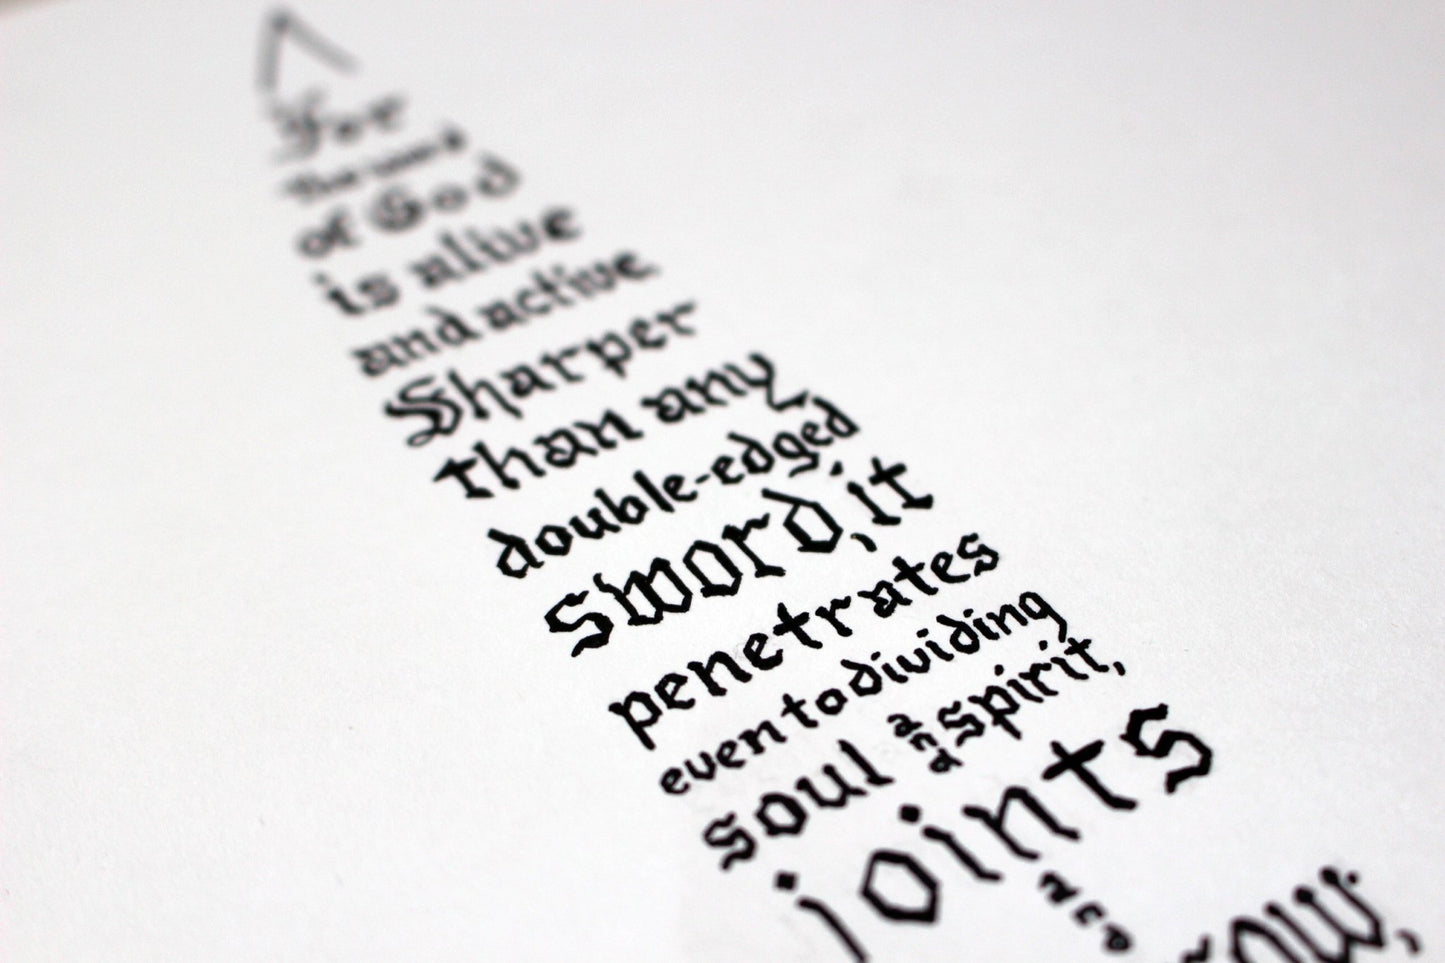 For
the word
of God
is alive
and active
Sharper
than any
double-edged
sword, it
penetrates
even to dividing
soul and spirit,
joints
and